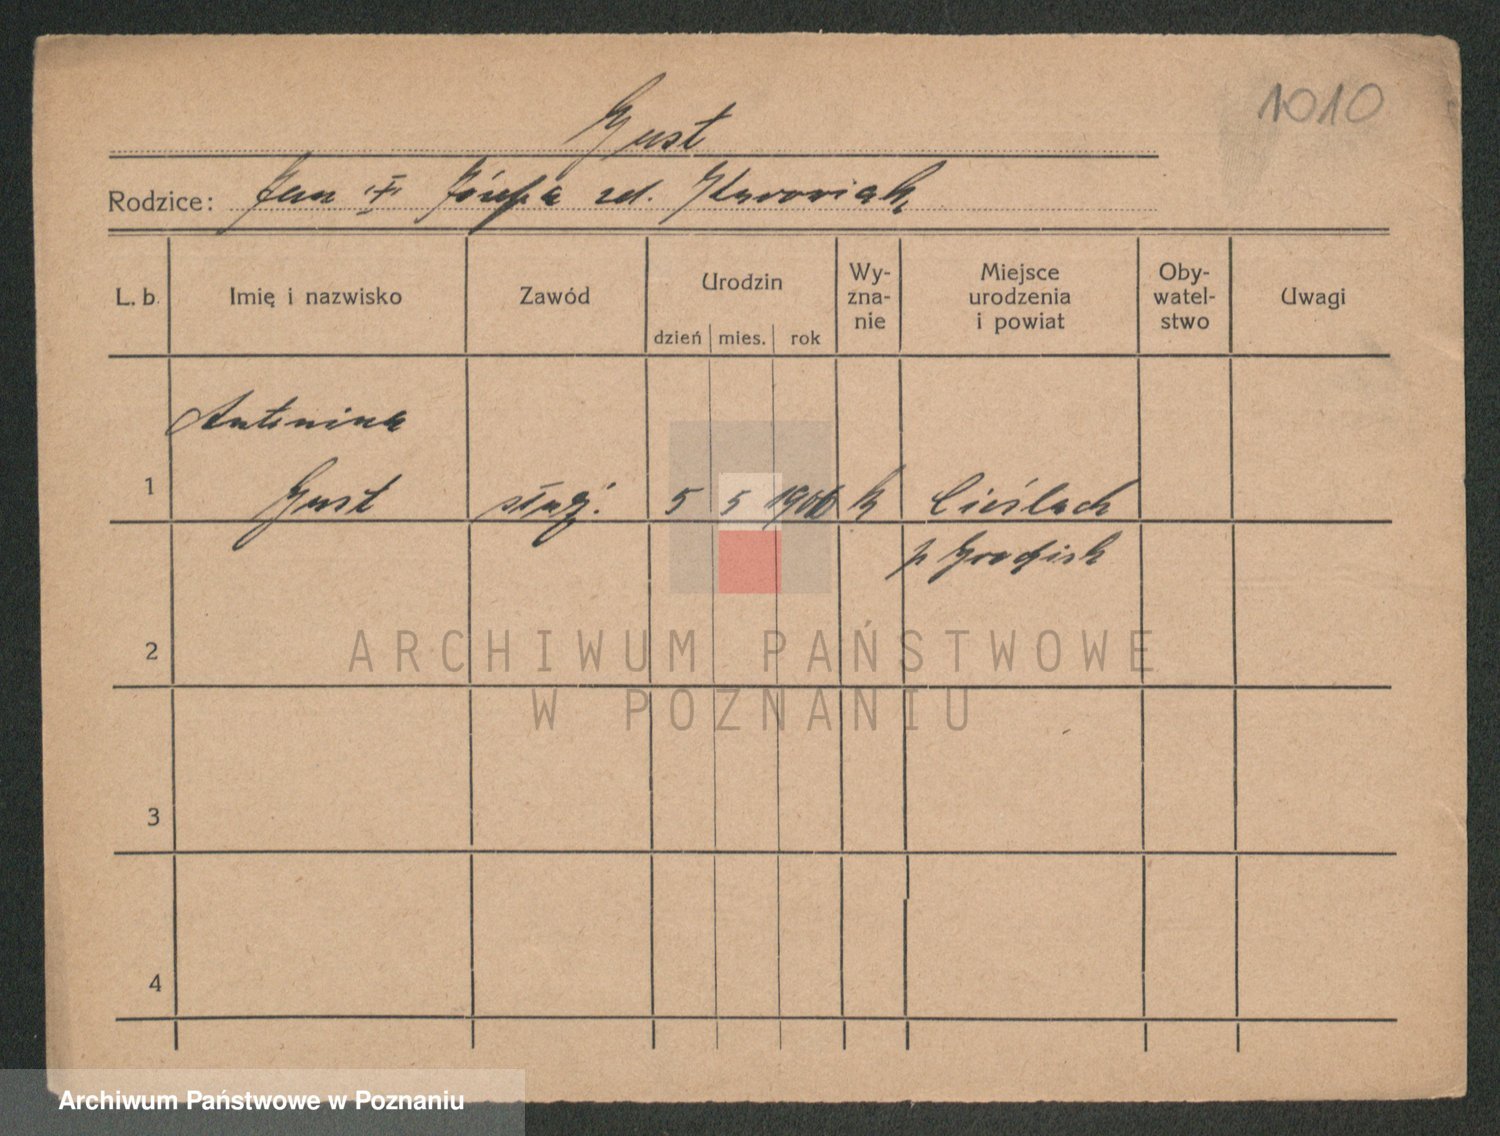 1010
Gust
Rodzice: Jan i Józefa zd.
L. b. Imię i nazwisko Zawód Urodzin Wy- Miejsce Oby- Uwagi
zna- urodzenia watel-
nie i powiat stwo
dzień mies. rok
Antonina
1 Gust służ. 5 5 1906 k Cieślach
p Grodzisk
2
ARCHIWUM PAŃSTWOWE
W POZNANIU
3
4
Archiwum Państwowe w Poznaniu